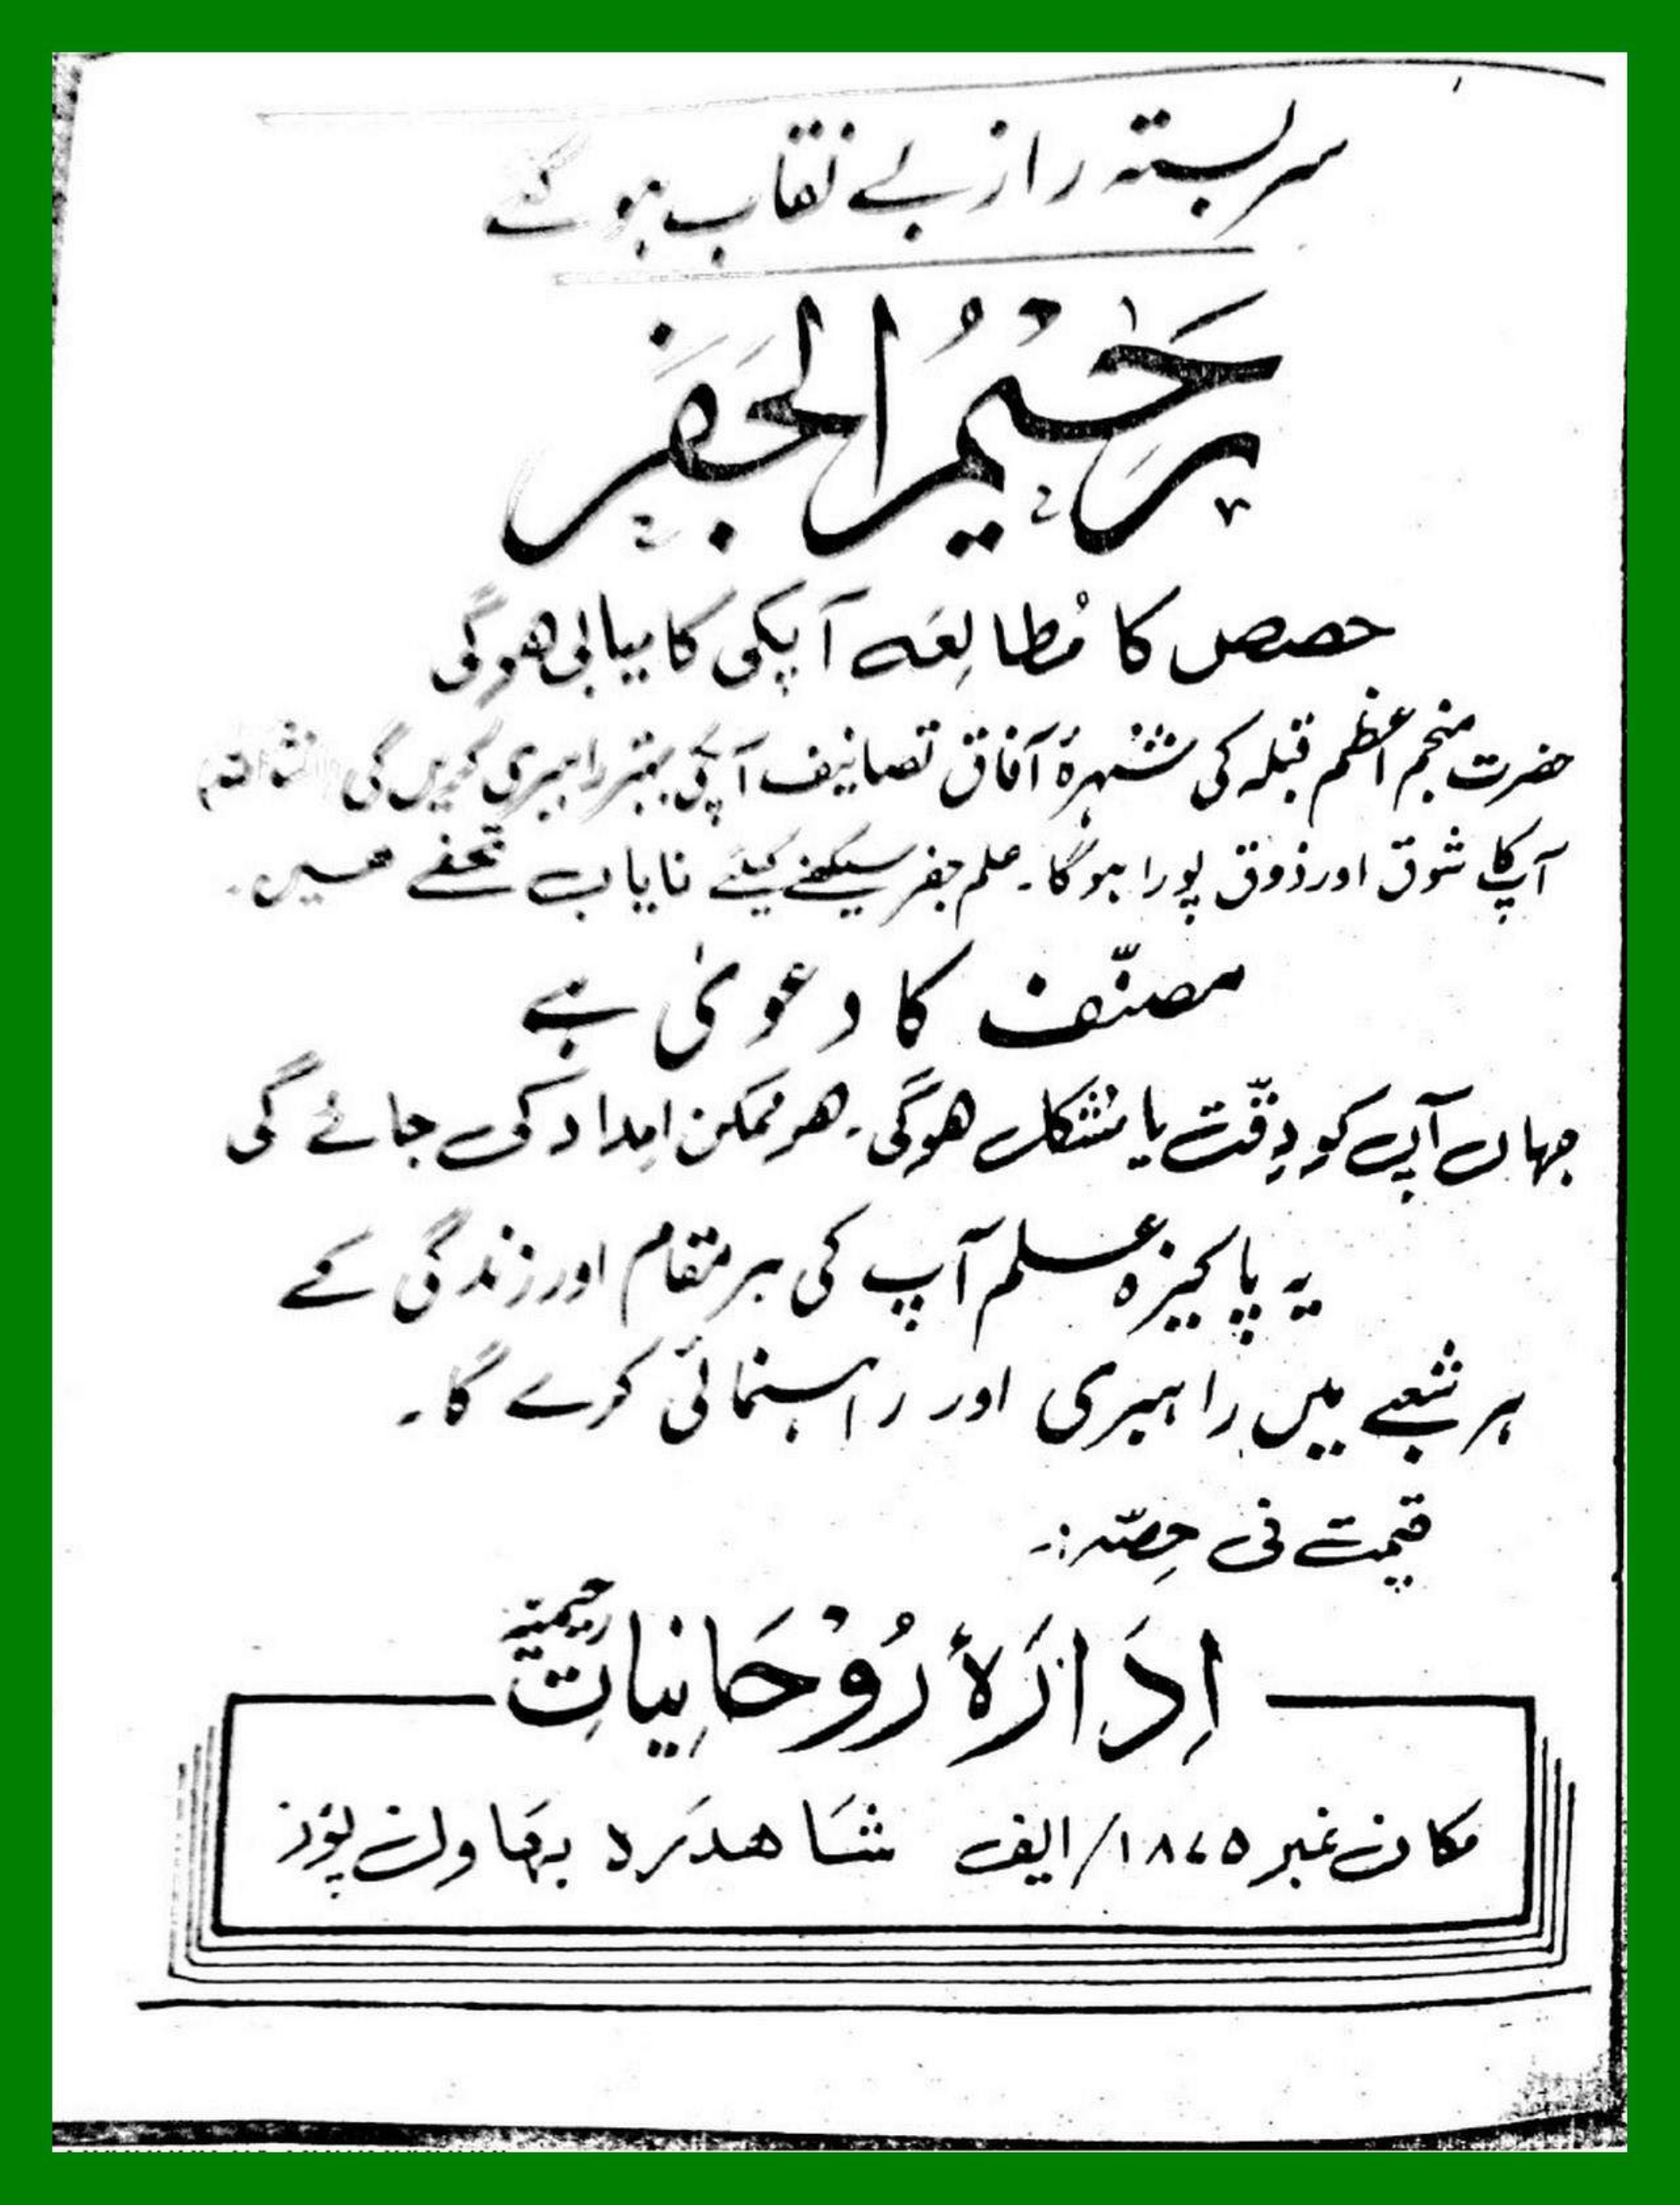 سربستہ راز بے نقاب ہو گئے
رَحِیْمُ الجَفَر
حصص کا مُطالِعَہ آپکی کامیابی ھوگی
حضرت منجم اعظم قبلہ کی شُہرۂ آفاق تصانیف آپکی بہتر راہبری کریں گی
آپکا شوق اور ذوق پورا ہوگا۔ علم جفر سیکھنے کیلئے نایاب تحفے ھیں۔
مصنّف کا دعویٰ ہے
جہاں آپ کو دِقّت یا مُشکل ھوگی۔ ھر ممکن امِداد کی جائے گی
یہ پاکیزہ علم آپ کی ہر مقام اور زندگی کے
ہر شعبے میں راہبری اور راہنمائی کرے گا۔
قیمت فی حِصّہ :۔
اِدَارَۂ رُوْحَانِیاتِ رحیمیہ
مکان نمبر ۱۸۷۵/الیف شَاھدَرہ بہَاولپُور